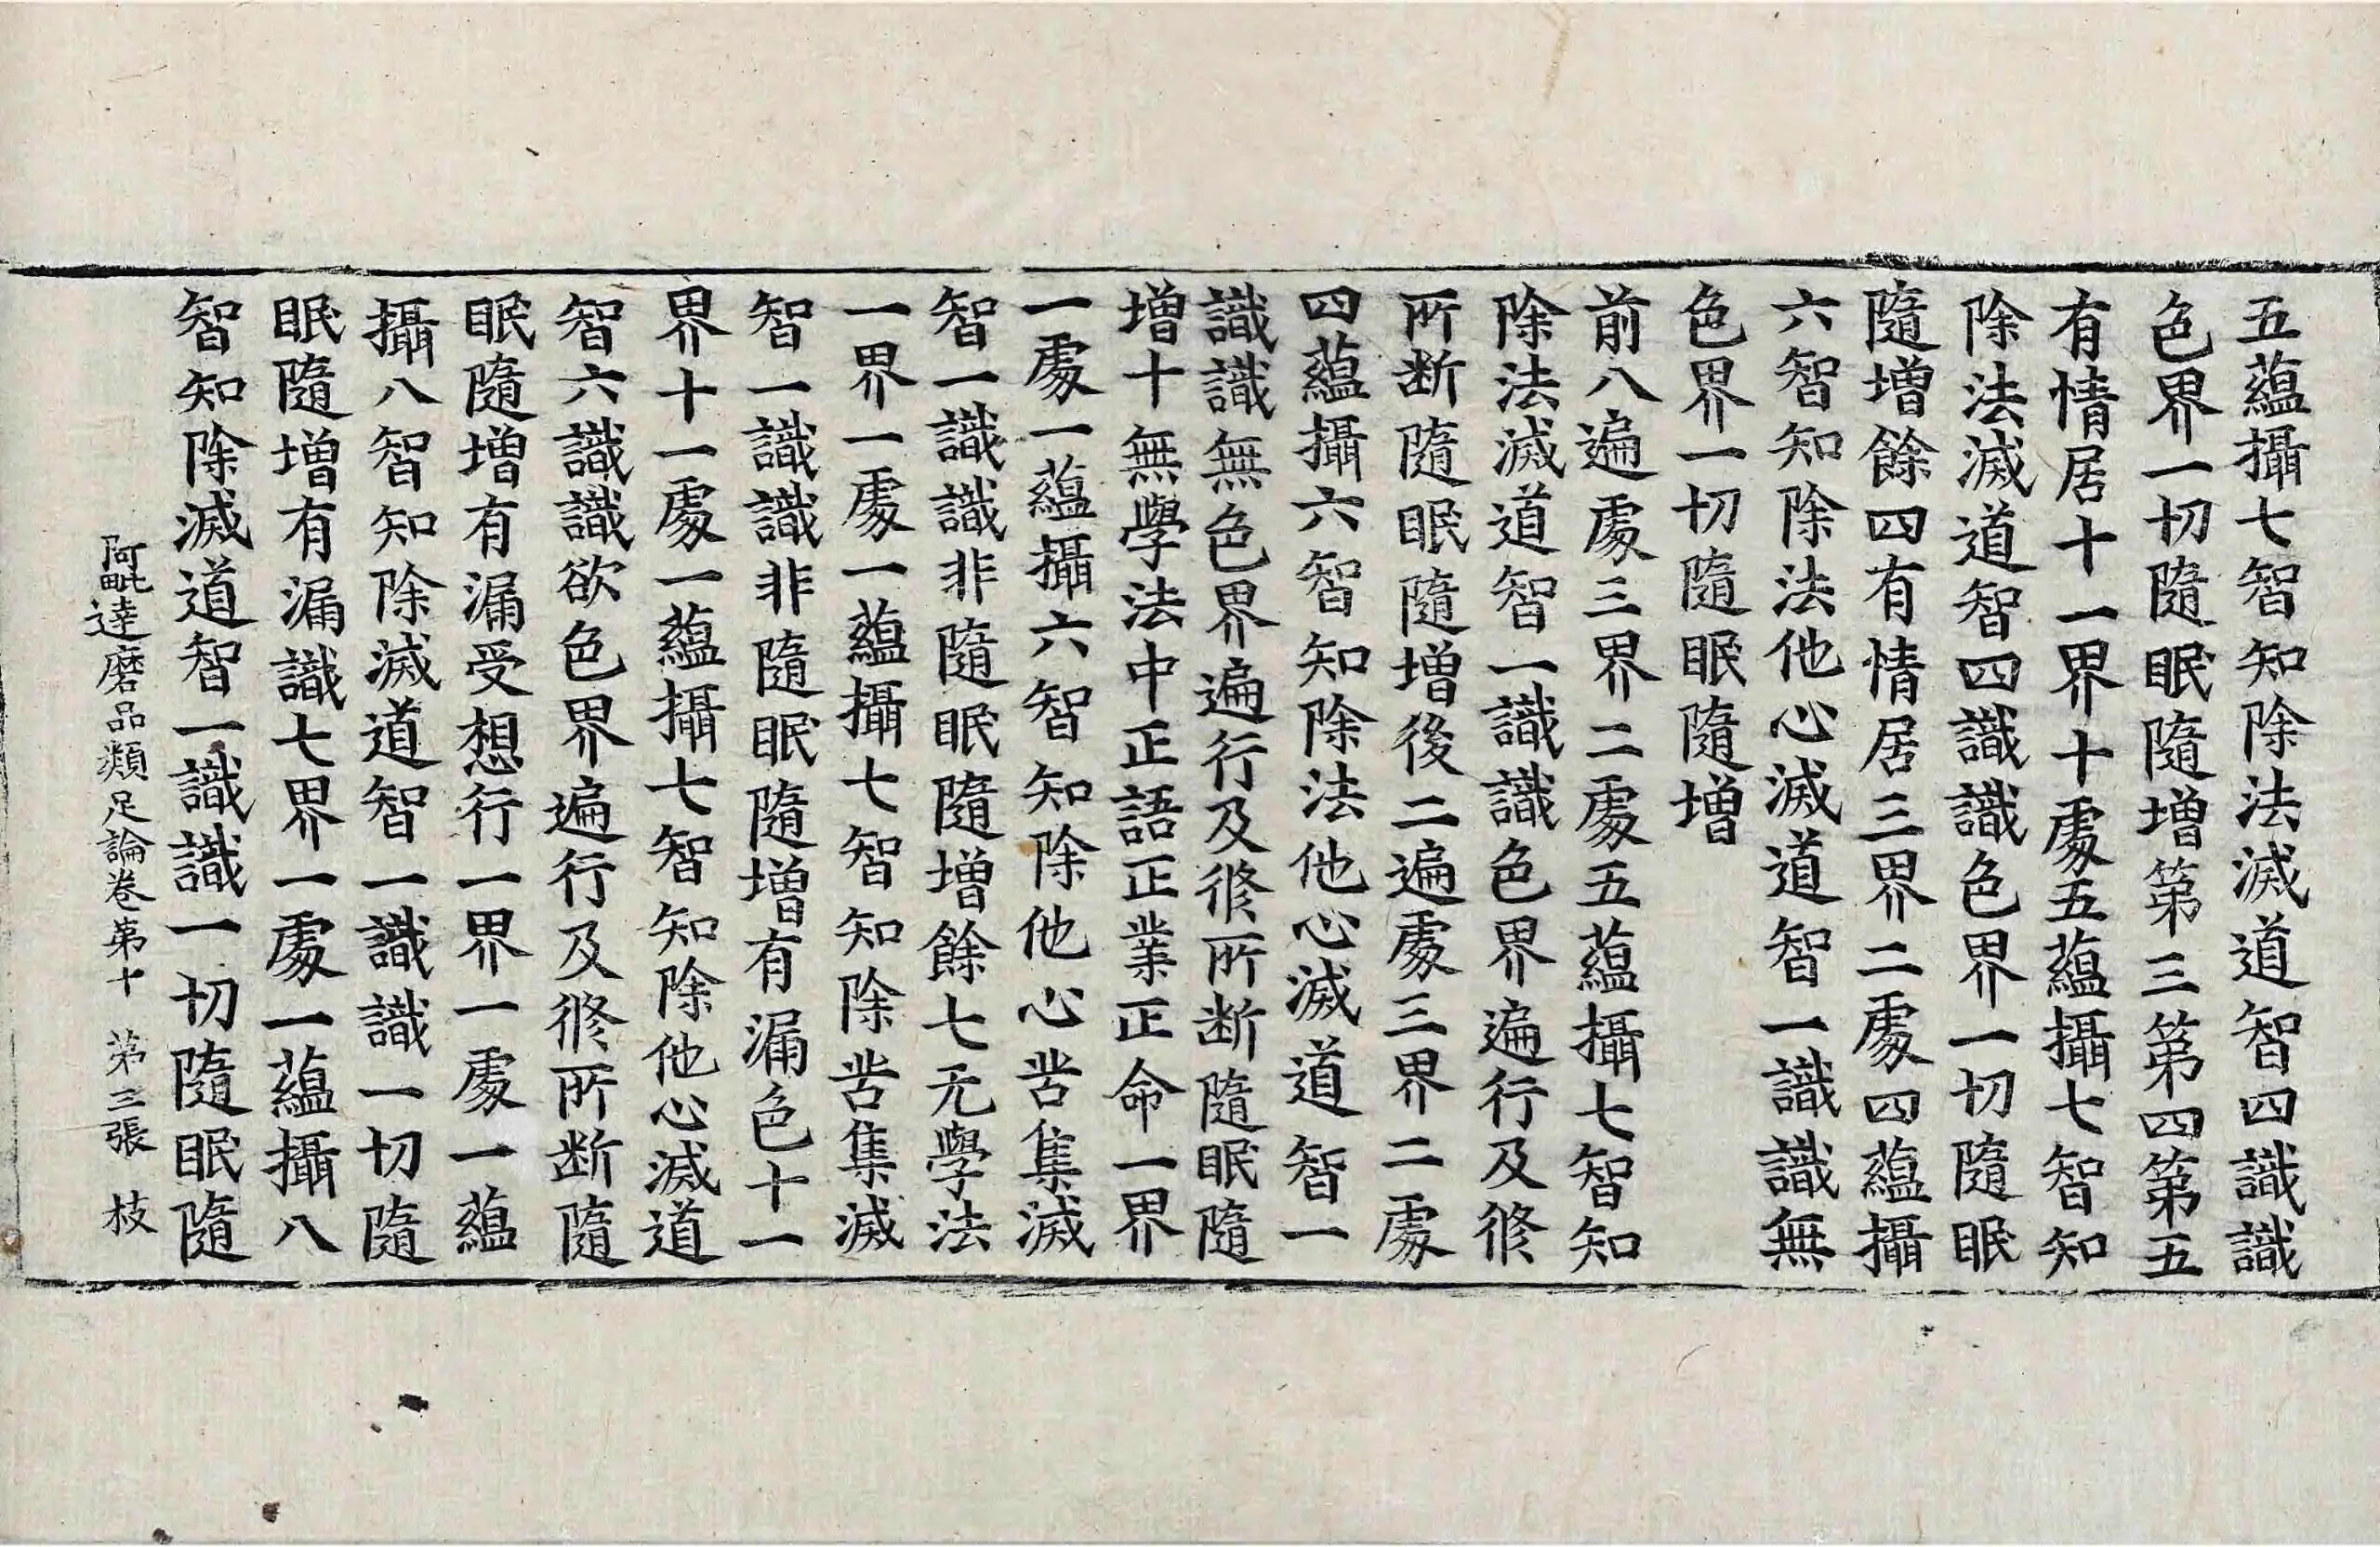 五蘊攝七智知除法滅道智四識識
色界一切隨眠隨增第三第四第五
有情居十一界十處五蘊攝七智知
除法滅道智四識識色界一切隨眠
隨增餘四有情居三界二處四蘊攝
六智知除法他心滅道智一識識無
色界一切隨眠隨增
前八遍處三界二處五蘊攝七智知
除法滅道智一識識色界遍行及修
所断隨眠隨增後二遍處三界二處
四蘊攝六智知除法他心滅道智一
識識無色界遍行及修所断隨眠隨
增十無學法中正語正業正命一界
一處一蘊攝六智知除他心苦集滅
智一識識非隨眠隨增餘七无學法
一界一處一蘊攝七智知除苦集滅
智一識識非隨眠隨增有漏色十一
界十一處一蘊攝七智知除他心滅道
智六識識欲色界遍行及修所断隨
眠隨增有漏受想行一界一處一蘊
攝八智知除滅道智一識識一切隨
眠隨增有漏識七界一處一蘊攝八
智知除滅道智一識識一切隨眠隨
阿毗達磨品類足論卷第十 第三張 枝